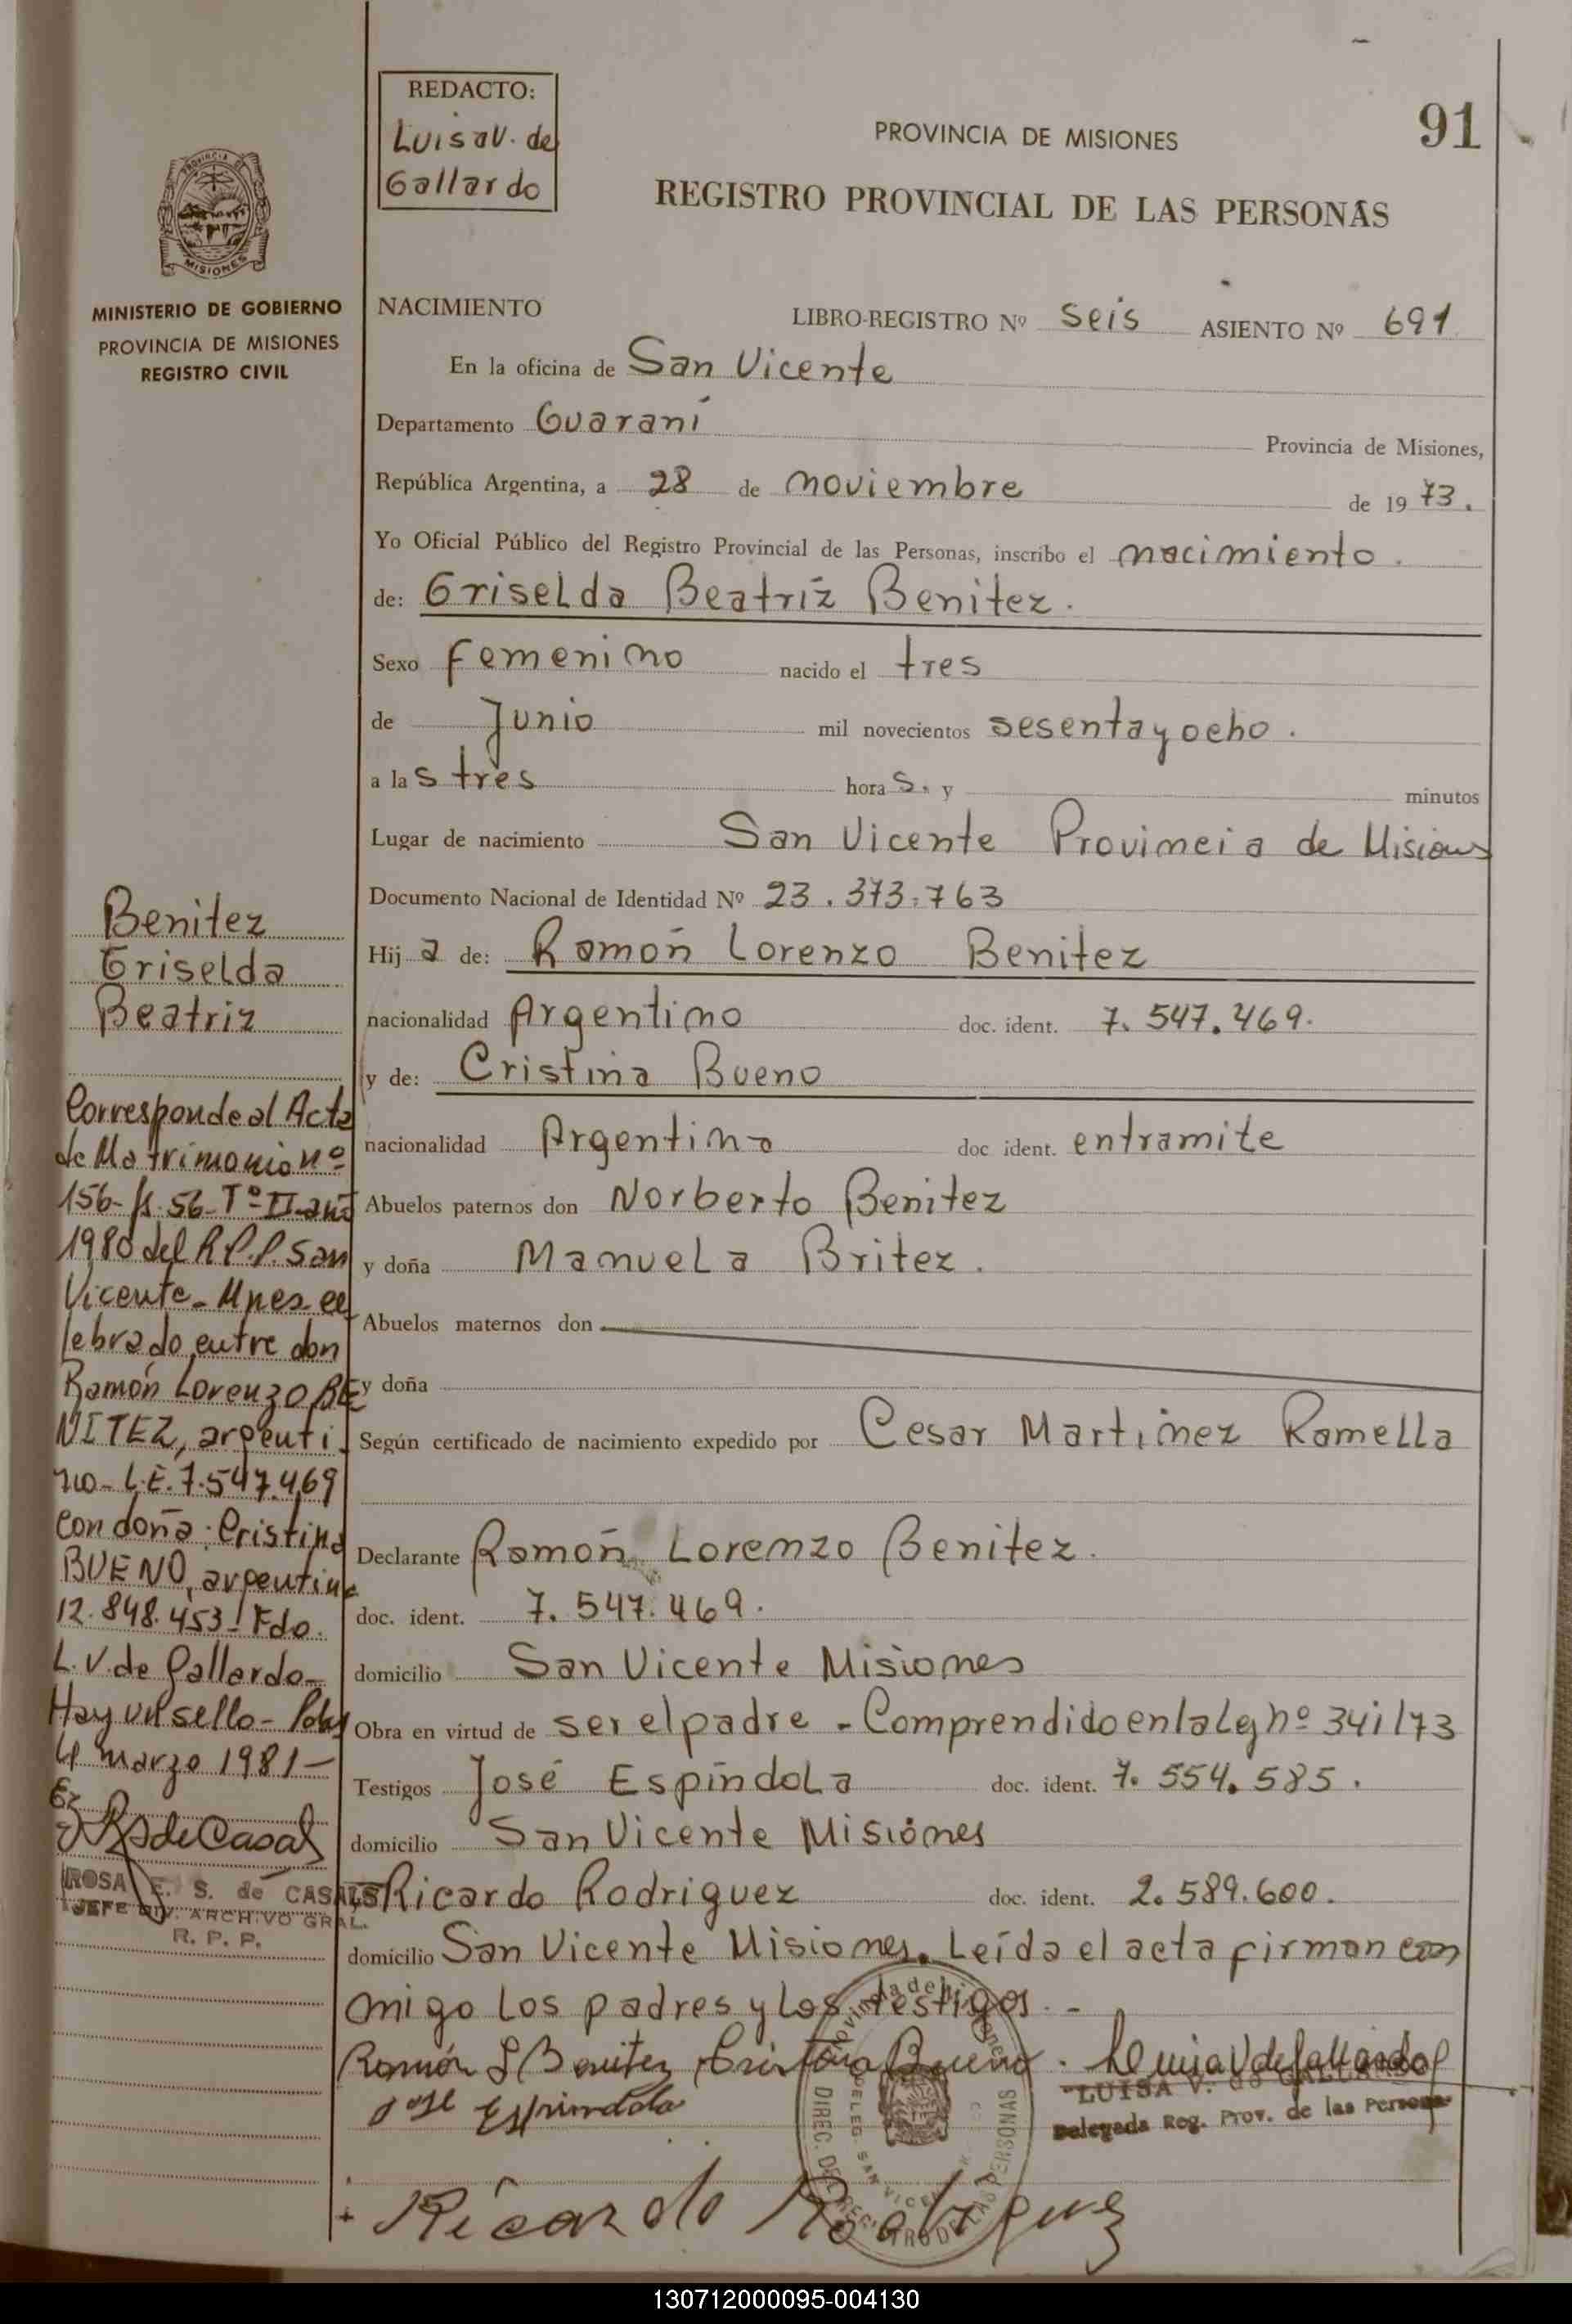 REDACTO:
Luisa V. de
Gallardo
PROVINCIA DE MISIONES
91
REGISTRO PROVINCIAL DE LAS PERSONAS
PROVINCIA DE
MISIONES
MINISTERIO DE GOBIERNO
PROVINCIA DE MISIONES
REGISTRO CIVIL
NACIMIENTO LIBRO-REGISTRO Nº seis ASIENTO Nº 691
En la oficina de San Vicente
Departamento Guaraní Provincia de Misiones,
República Argentina, a 28 de noviembre de 1973.
Yo Oficial Público del Registro Provincial de las Personas, inscribo el nacimiento.
de: Griselda Beatríz Benitez.
Sexo femenino nacido el tres
de Junio mil novecientos sesenta y ocho.
a las tres horas. y minutos
Lugar de nacimiento San Vicente Provincia de Misiones
Documento Nacional de Identidad Nº 23.373.763
Hija de: Ramón Lorenzo Benitez
nacionalidad Argentino doc. ident. 7.547.469.
y de: Cristina Bueno
nacionalidad Argentina doc ident. entramite
Abuelos paternos don Norberto Benitez
y doña Manuela Britez.
Abuelos maternos don
y doña
Según certificado de nacimiento expedido por Cesar Martinez Ramella
Declarante Ramón Lorenzo Benitez.
doc. ident. 7.547.469.
domicilio San Vicente Misiones
Obra en virtud de ser el padre - Comprendido en la Ley nº 341/73
Testigos José Espíndola doc. ident. 7.554.585.
domicilio San Vicente Misiones
Ricardo Rodriguez doc. ident. 2.589.600.
domicilio San Vicente Misiones. Leída el acta firman con
migo los padres y los testigos. -
Ramón L Benitez Cristina Bueno. Luisa V de Gallardo
LUISA V. de GALLARDO
Delegada Reg. Prov. de las Personas
José Espindola
Ricardo Rodriguez
Provincia de Misiones
DELEG. SAN VICENTE
DIREC. DEL REGISTRO DE LAS PERSONAS
Benitez
Griselda
Beatriz
Corresponde al Acta
de Matrimonio nº
156- fs. 56- Tº II- año
1980 del R.P.P. San
Vicente- Mnes- ce
lebrado entre don
Ramón Lorenzo BE
NITEZ, argenti
no- L.E. 7.547.469
con doña: Cristina
BUENO, argentina
12.848.453- Fdo.
L.V. de Gallardo-
Hay un sello- Pdas
4 marzo 1981-
RS de Casals
ROSA E. S. de CASALS
JEFE DIV. ARCHIVO GRAL.
R. P. P.
130712000095-004130